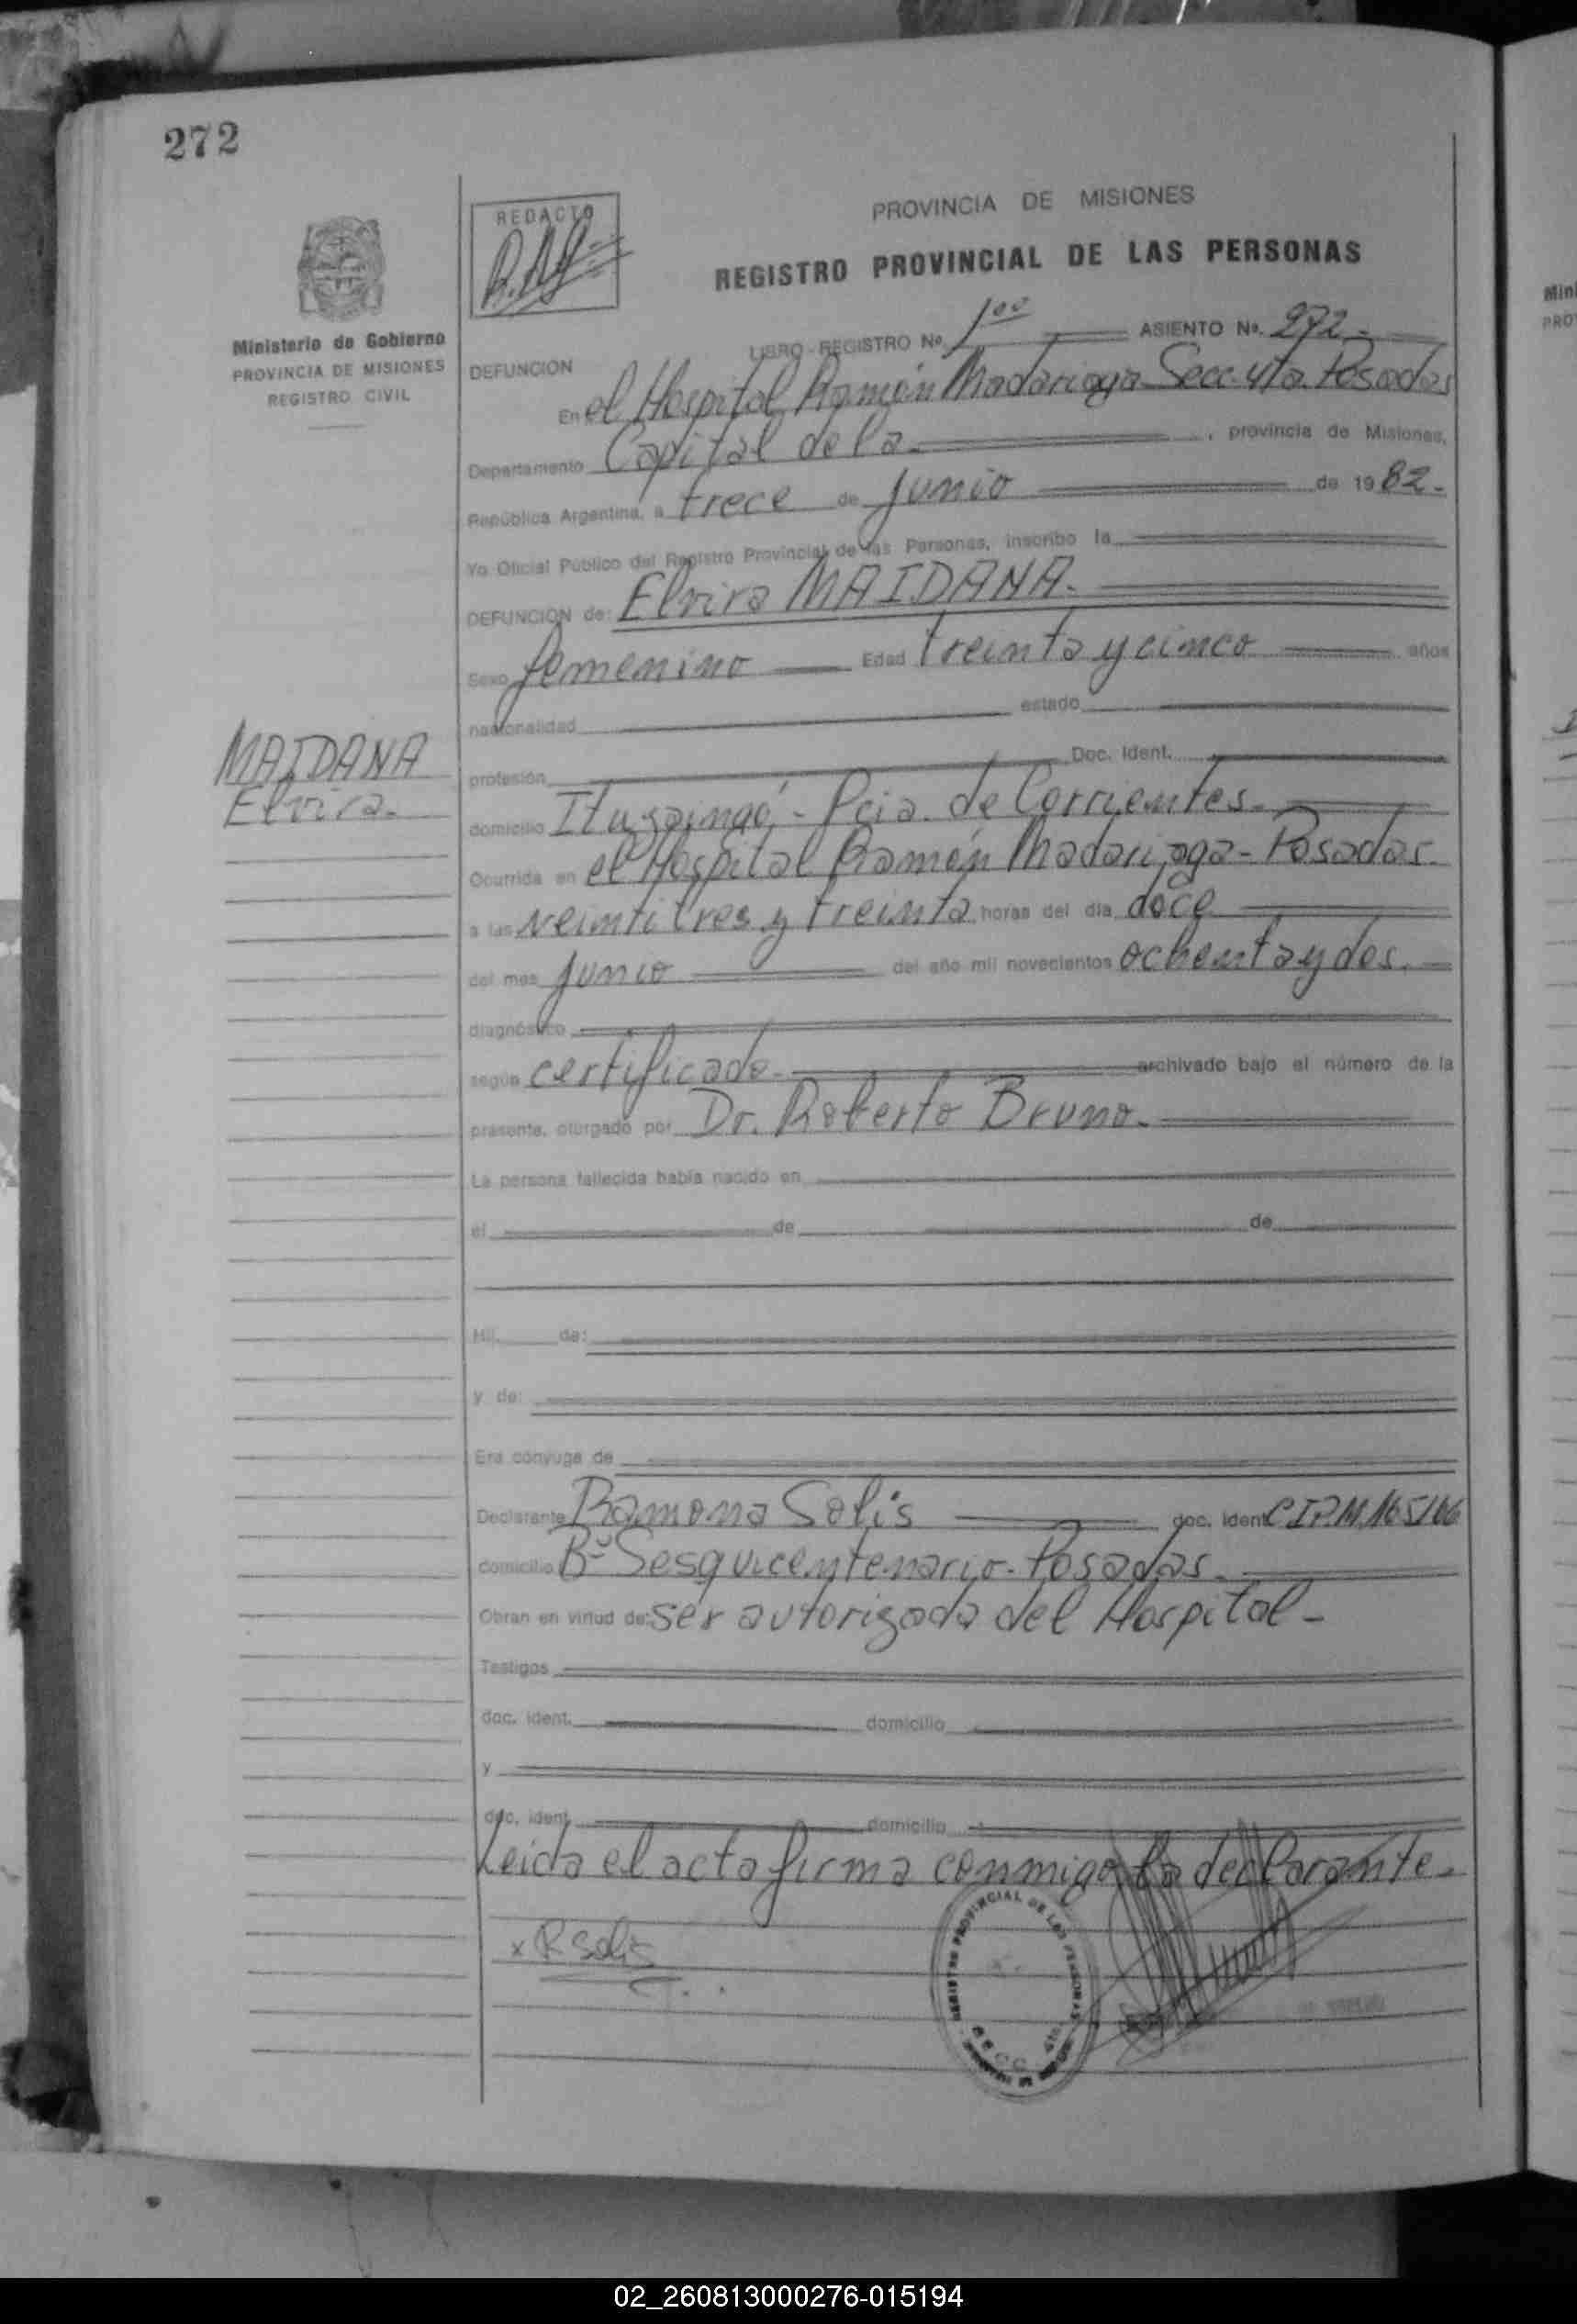 272
REDACTO
PROVINCIA DE MISIONES
REGISTRO PROVINCIAL DE LAS PERSONAS
Ministerio de Gobierno
PROVINCIA DE MISIONES
REGISTRO CIVIL
LIBRO - REGISTRO No. 1oo ASIENTO No. 272.-
DEFUNCION
En el Hospital Ramón Madariaga Secc. 4ta. Posadas
Departamento Capital de la , provincia de Misiones,
República Argentina, a trece de junio de 1982.-
Yo Oficial Público del Registro Provincial de las Personas, inscribo la
DEFUNCION de: Elvira MAIDANA.
Sexo femenino Edad treinta y cinco años
nacionalidad estado
MAIDANA
Elvira.
profesión Doc. Ident.
domicilio Ituzaingó - Pcia. de Corrientes.
Ocurrida en el Hospital Ramón Madariaga - Posadas.
a las veintitres y treinta horas del día doce
del mes junio del año mil novecientos ochenta y dos.
diagnóstico
según certificado. archivado bajo el número de la
presente, otorgado por Dr. Roberto Bruno.
La persona fallecida había nacido en
el de de
Hij. de:
y de:
Era cónyuge de
Declarante Ramona Solis doc. ident C.I.P.M. 165166
domicilio Bº Sesquicentenario - Posadas.
Obran en virtud de: ser autorizada del Hospital -
Testigos
doc. ident. domicilio
y
doc. ident. domicilio
Leida el acta firma conmigo la declarante.
x R Solis
REGISTRO PROVINCIAL DE LAS PERSONAS
SECC. 4ta.
02_260813000276-015194